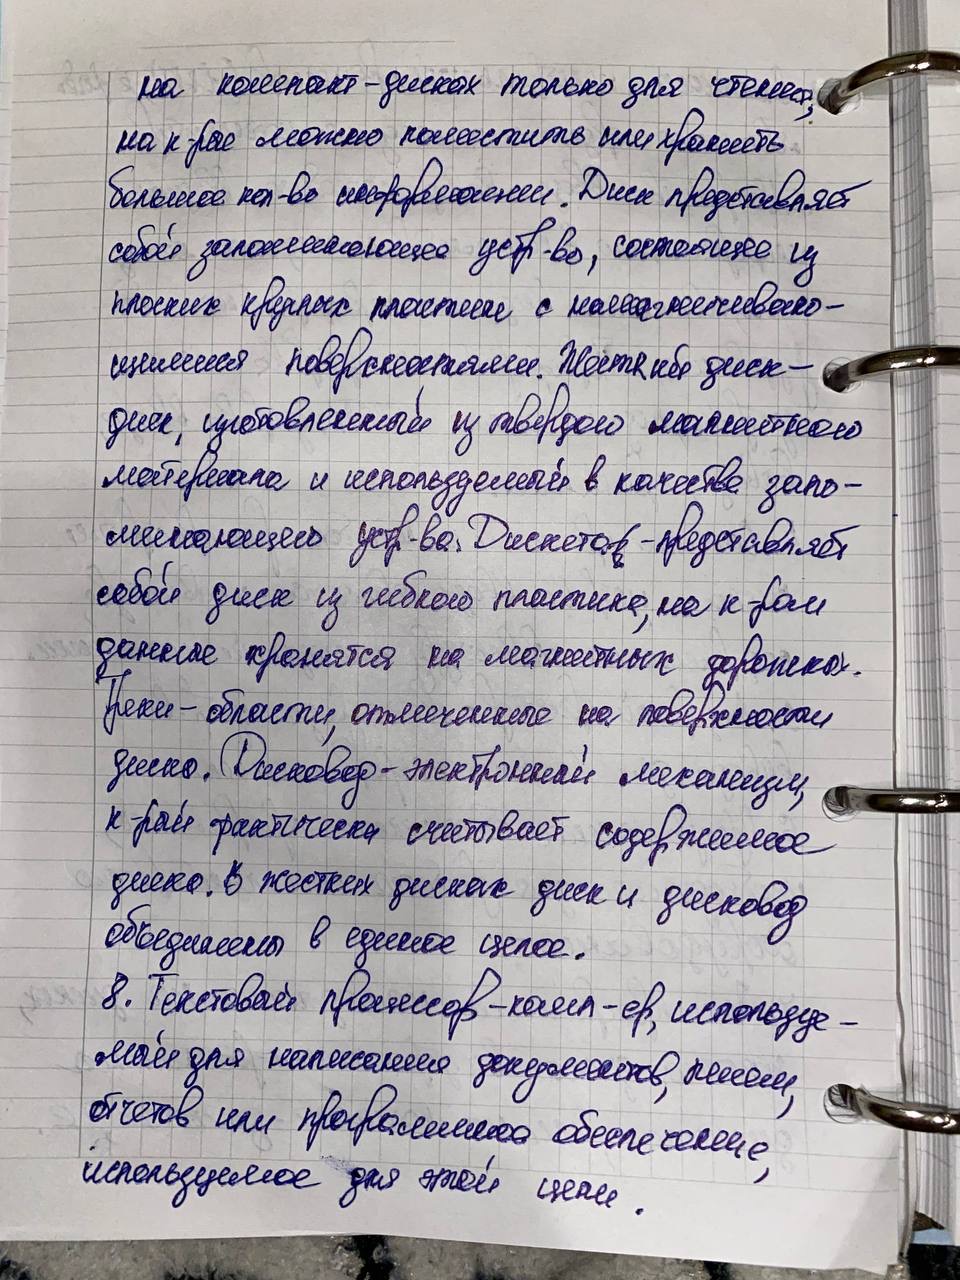 на компакт-дисках только для чтения,
на к-рые можно поместить или хранить
большое кол-во информации. Диск представляет
собой запоминающее устр-во, состоящее из
плоских круглых пластин с намагничиваю-
щимися поверхностями. Жесткий диск-
диск, изготовленный из твердого магнитного
материала и используемый в качестве запо-
минающего устр-ва. Дискета - представляет
собой диск из гибкого пластика, на к-ром
данные хранятся на магнитных дорожках.
Треки - области, отмеченные на поверхности
диска. Дисковод - электронный механизм,
к-рый фактически считывает содержимое
диска. В жестких дисках диск и дисковод
объединены в единое целое.
8. Текстовый процессор - комп-ер, используе-
мый для написания документов, писем,
отчетов или программное обеспечение,
используемое для этой цели.